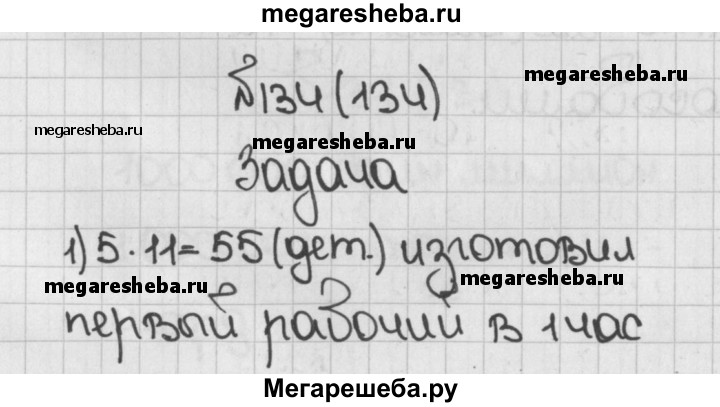 megaresheba.ru
№134 (134)
megaresheba.ru
megaresheba.ru
megaresheba.ru
Задача
1) 5 · 11 = 55 (дет.) изготовил
megaresheba.ru
megaresheba.ru
первый рабочий в 1 час
Мегарешеба.ру